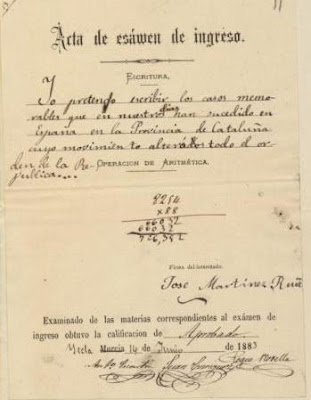 Acta de esámen de ingreso.
ESCRITURA.
Yo pretendo escribir los casos memo-
rables que en nuestros dias han sucedido en
España en la Provincia de Cataluña
cuyo movimiento alteró todo el or-
den de la Re-
OPERACION DE ARITMÉTICA.
publica...
8254
x88
66032
66032
726,352
Firma del interesado,
Jose Martinez Ruiz
Examinado de las materias correspondientes al exámen de
ingreso obtuvo la calificacion de Aprobado
Yecla Murcia 14 de Junio de 1883